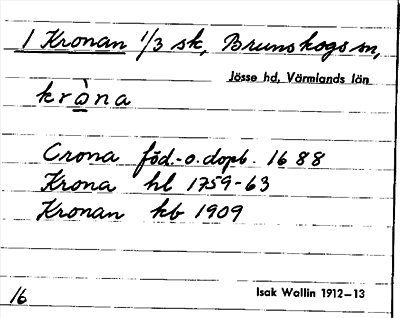 1 Kronan 1/3 sk, Brunskogs sn,
Jösse hd, Värmlands län
kròna
Crona föd.-o.dopb. 1688
Krona hl 1759-63
Kronan kb 1909
16
Isak Wallin 1912–13